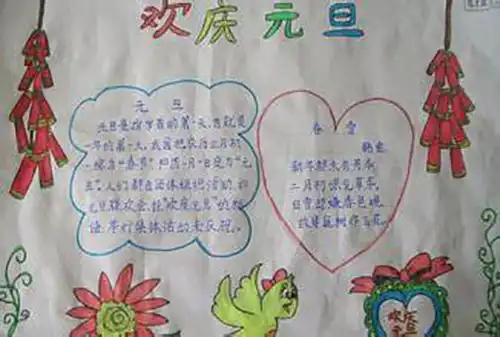 欢庆元旦
元旦
元旦是 岁首的第一天,也就是
一年的第一天。我国把农历正月初
一称为“春节”,把 历一月一日定为“元
旦”。人们都 团体组织活动,如
元旦联欢会,挂“欢庆元旦”的标
语,举行集体活动
春雪
韩愈
新年都未有芳华
二月初惊见草芽
白雪却嫌春色晚
故穿庭树作飞花
欢庆
元旦